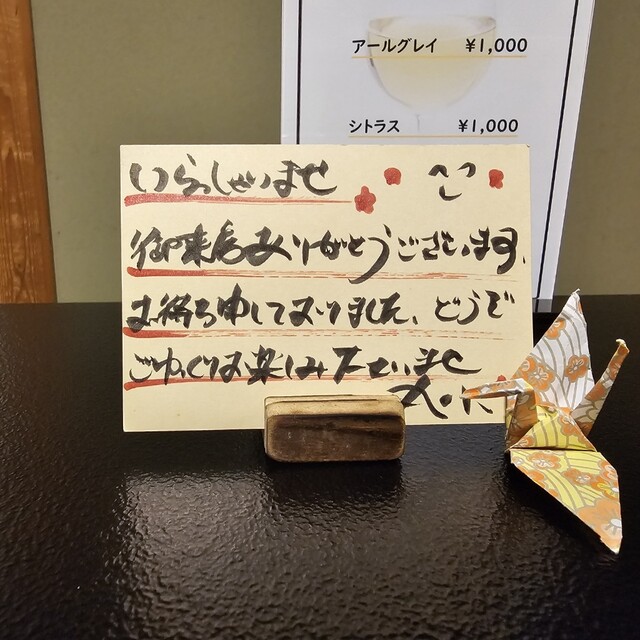 アールグレイ ¥1,000
シトラス ¥1,000
いらっしゃいませ
御来店ありがとうございます、
お待ち申しておりました、どうぞ
ごゆっくりお楽しみ下さいませ